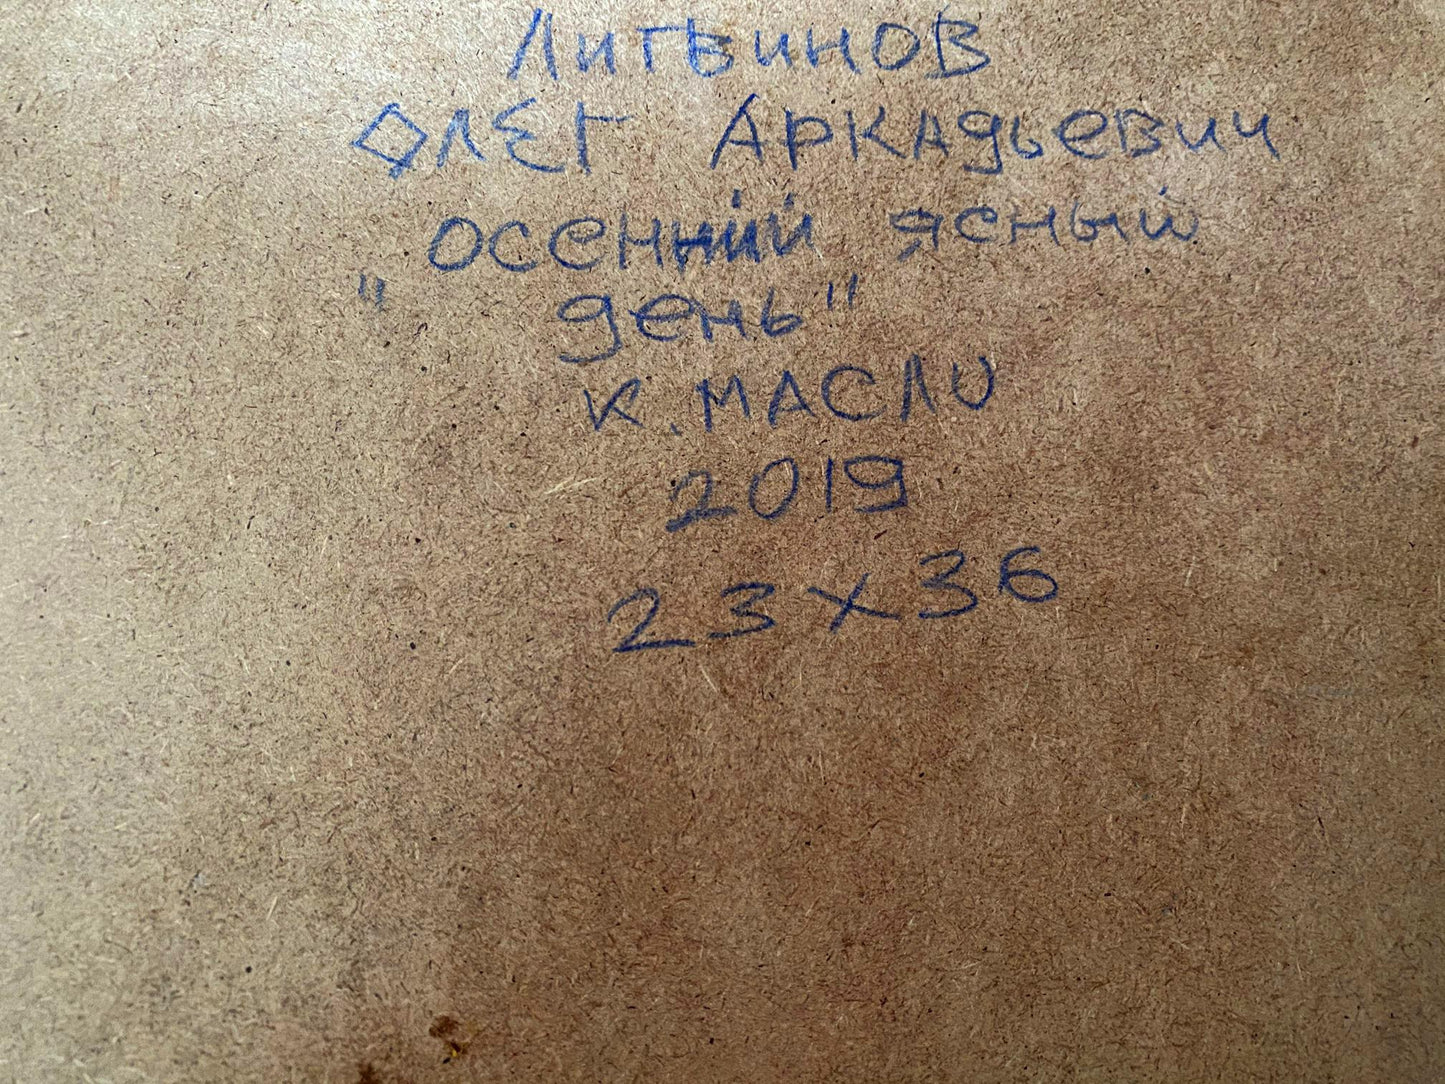 Литвинов
Олег Аркадьевич
осенний ясный
" день"
к. масло
2019
23х36